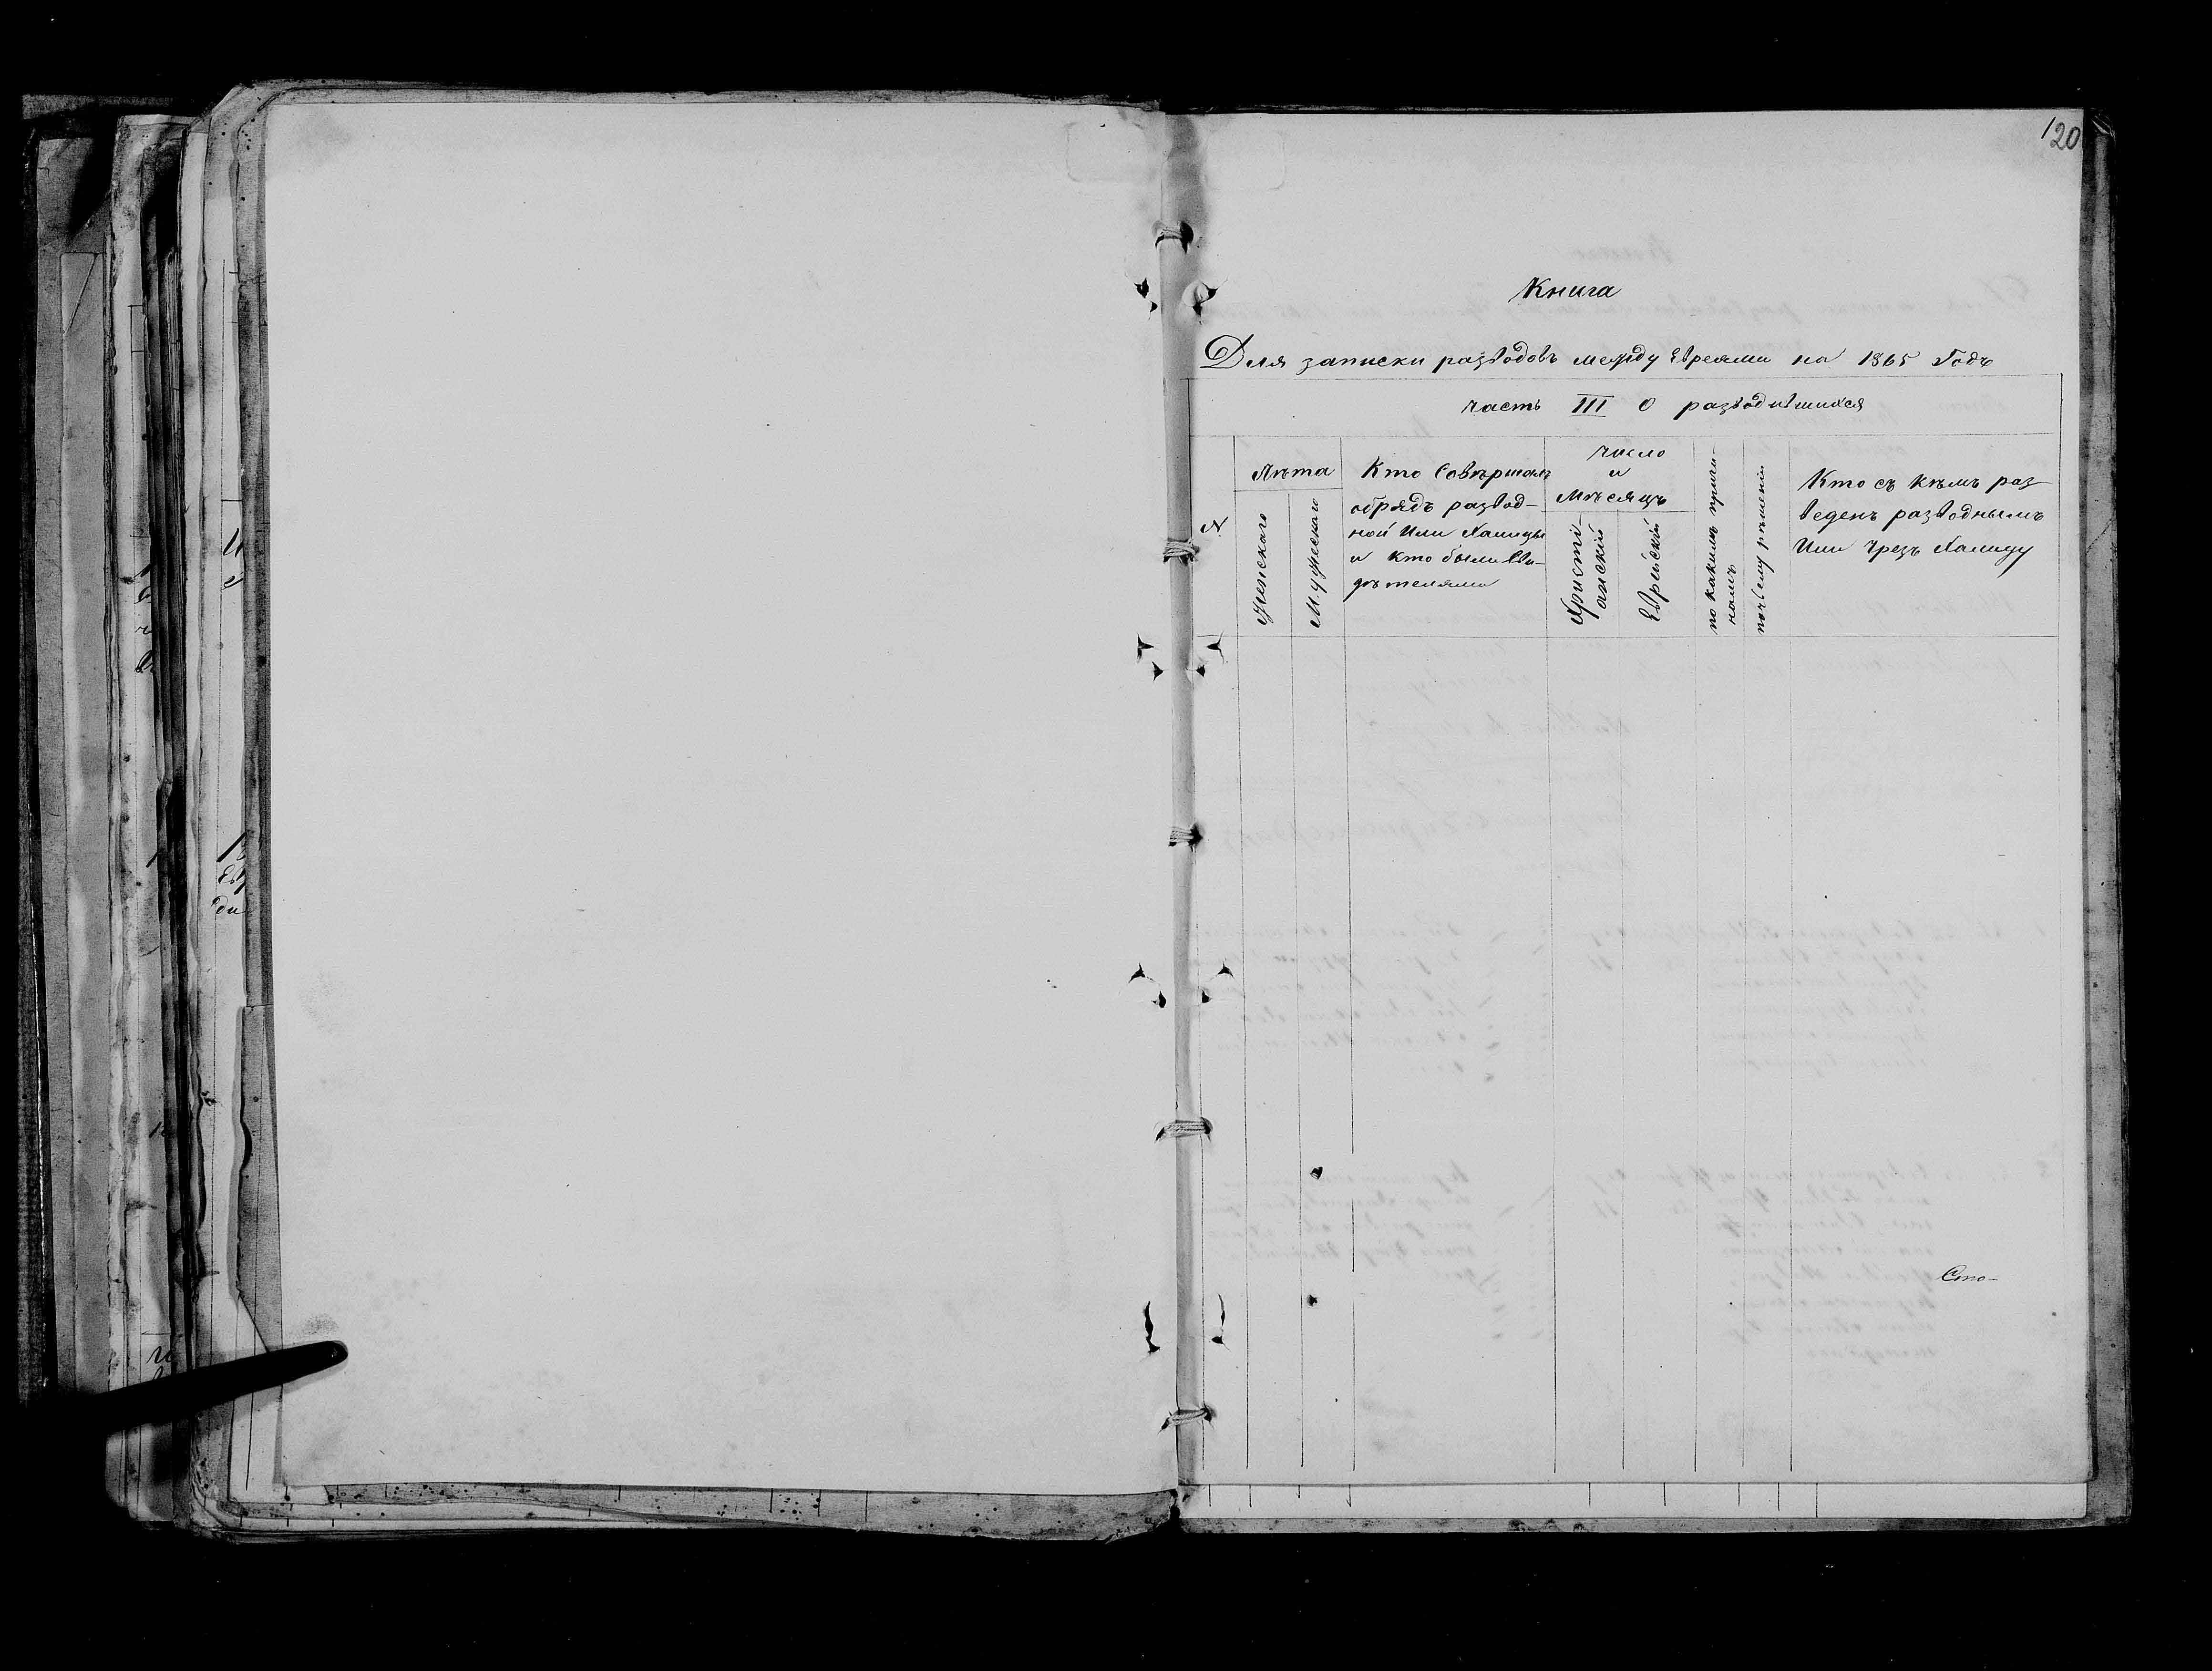 120
Книга
Для записки разводовъ между Евреями на 1865 Годъ
часть III О разводившихся
N
Лѣта
Женскаго
Мужескаго
Кто Совѣршалъ
обрядъ развод-
ной Или Халицы
и кто были сви-
дѣтелями
Число
и
Мѣсяцъ
Христі-
анскій
Еврейскій
по какимъ причи-
намъ
по чьему рѣшенію
Кто съ кѣмъ раз-
веденъ разводнымъ
Или чрезъ Халицу
Сто-